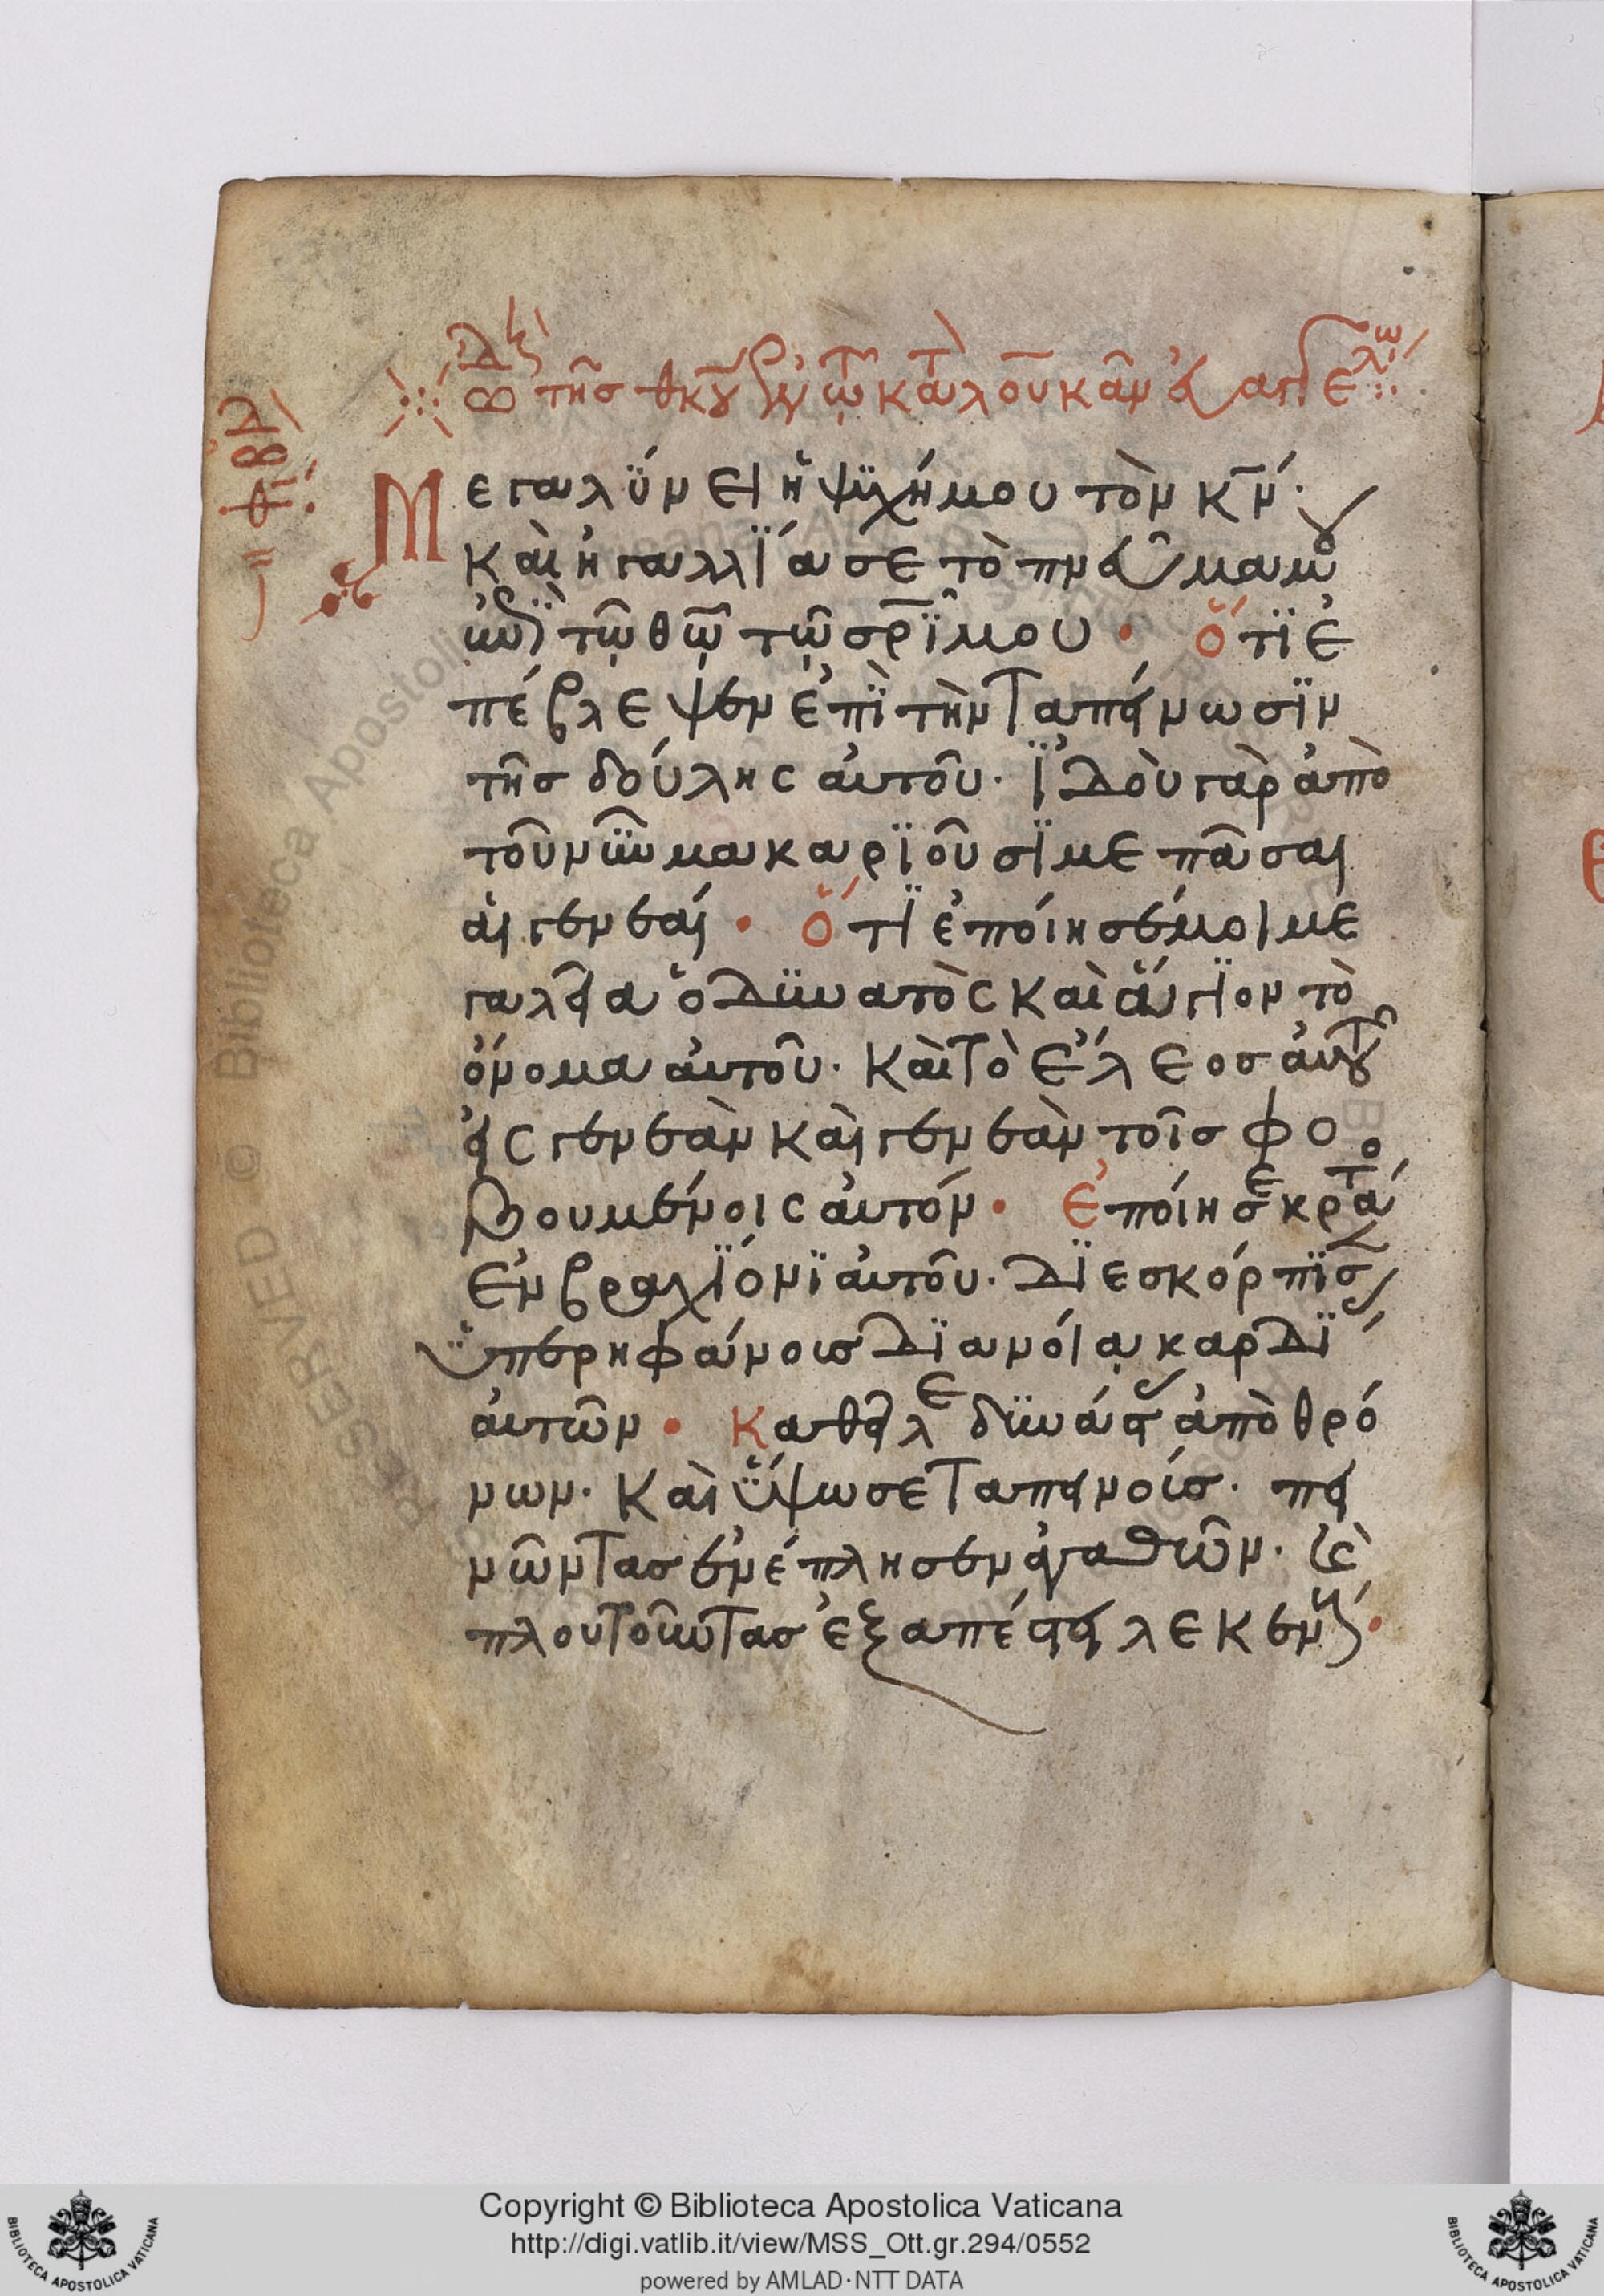 τῆσ θκου
Μεγαλύνει ἡ ψυχή μου τὸν κν́·
καὶ ἠγαλλίασε τὸ πνεῦμα μου
ἐπὶ τῶ θῶ τῶ σρΐ μου · ὅτι ἐ
πέβλεψεν ἐπὶ τὴν ταπείνωσϊν
τῆσ δούλης ἀυτοῦ· ἰδοὺ γὰρ ἀπὸ
τοῦ νῦν μακαριοῦσϊ με πᾶσαι
ἁι γενεαί · ὅτι ἐποίησέ μοι με
γαλεῖα ὁ δϋνατὸς καὶ ἅγϊον τὸ
ὄνομα ἀυτοῦ· καὶ τὸ ἔλεοσ ἀυτοῦ
εἰς γενεὰν καὶ γενεὰν τοῖσ φο
βουμένοις ἀυτόν · Ἐποίησε κράτο
ἐν βραχϊόνϊ ἀυτοῦ· Δϊεσκόρπϊσ
ὑπερηφάνοισ Δϊανόια καρδϊ
ἀυτῶν · Καθεῖλε δϋνάστασ ἀπὸ θρό
νων· καὶ ὕψωσε ταπεινοίσ· πει
νῶντασ ἐνέπλησεν ἀγαθῶν· κὲ
πλουτοῦντασ ἐξαπέστειλε κενούσ ·
Copyright © Biblioteca Apostolica Vaticana
http://digi.vatlib.it/view/MSS_Ott.gr.294/0552
powered by AMLAD·NTT DATA
BIBLIOTECA APOSTOLICA VATICANA
BIBLIOTECA APOSTOLICA VATICANA